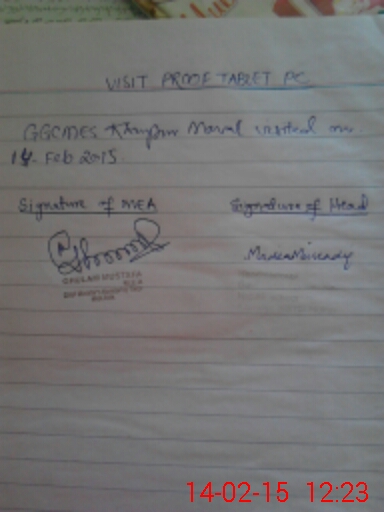 VISIT PROOF TABLET PC
GGCMES Khanpur Maral visited on
14 Feb 2015
Signature of MEA
Signature of Head
GHULAM MUSTAFA
M.E.A
14-02-15 12:23